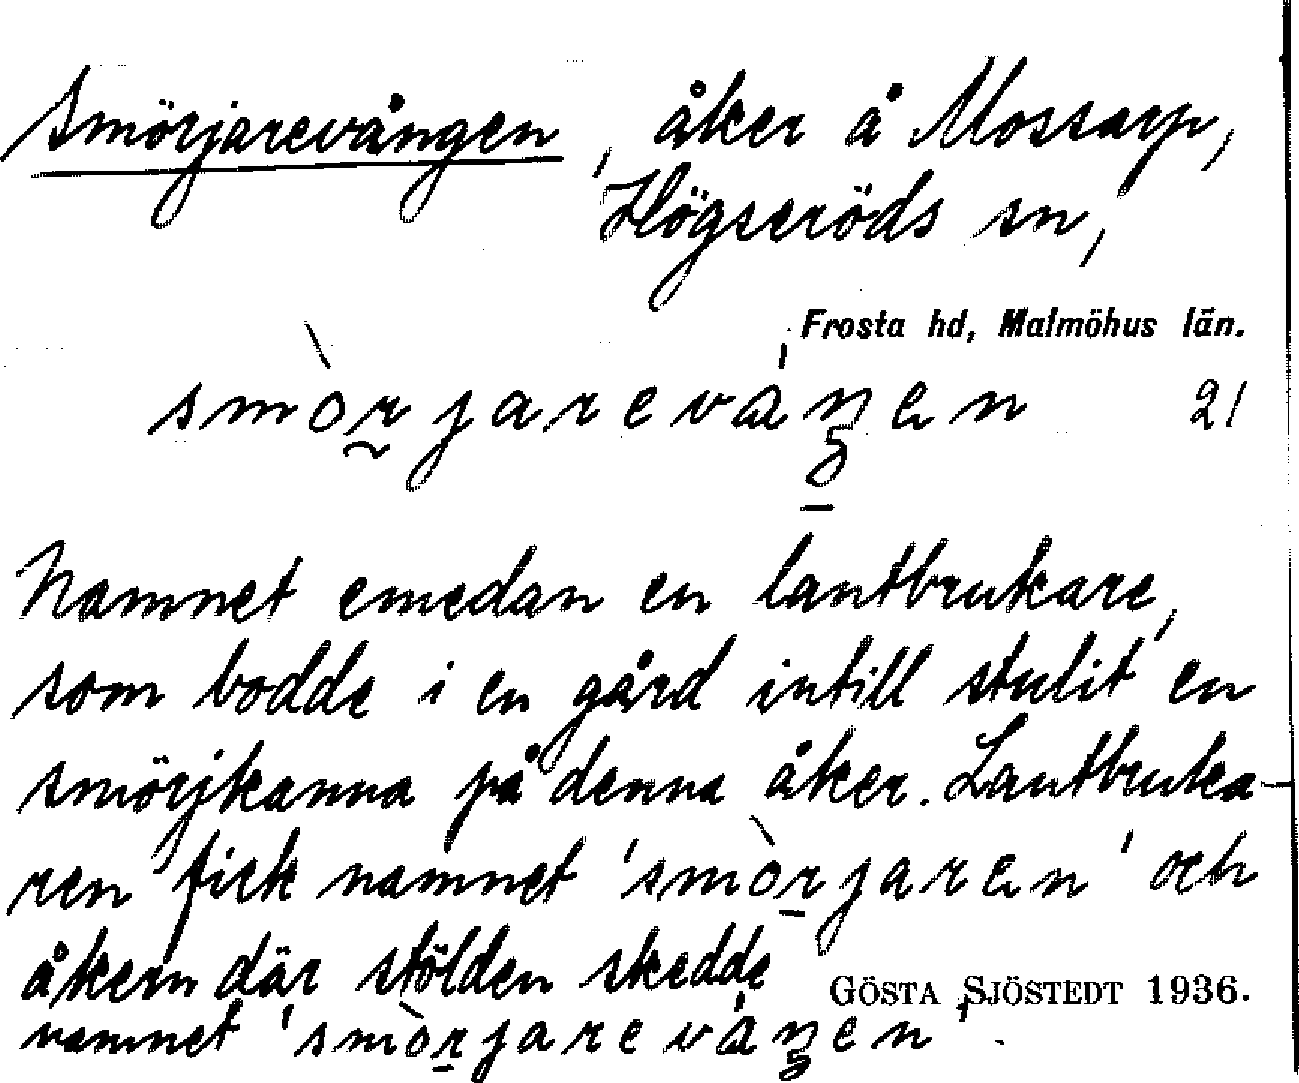 Smörjarevången, åker å Mossarp,
Högseröds sn,
Frosta hd, Malmöhus län.
smòrjareváŋen 21
Namnet emedan en lantbrukare,
som bodde i en gård intill stulit en
smörjkanna på denna åker. Lantbruka-
ren fick namnet 'smòrjaren' och
åkern där stölden skedde
namnet 'smòrjareváŋen'.
GÖSTA SJÖSTEDT 1936.